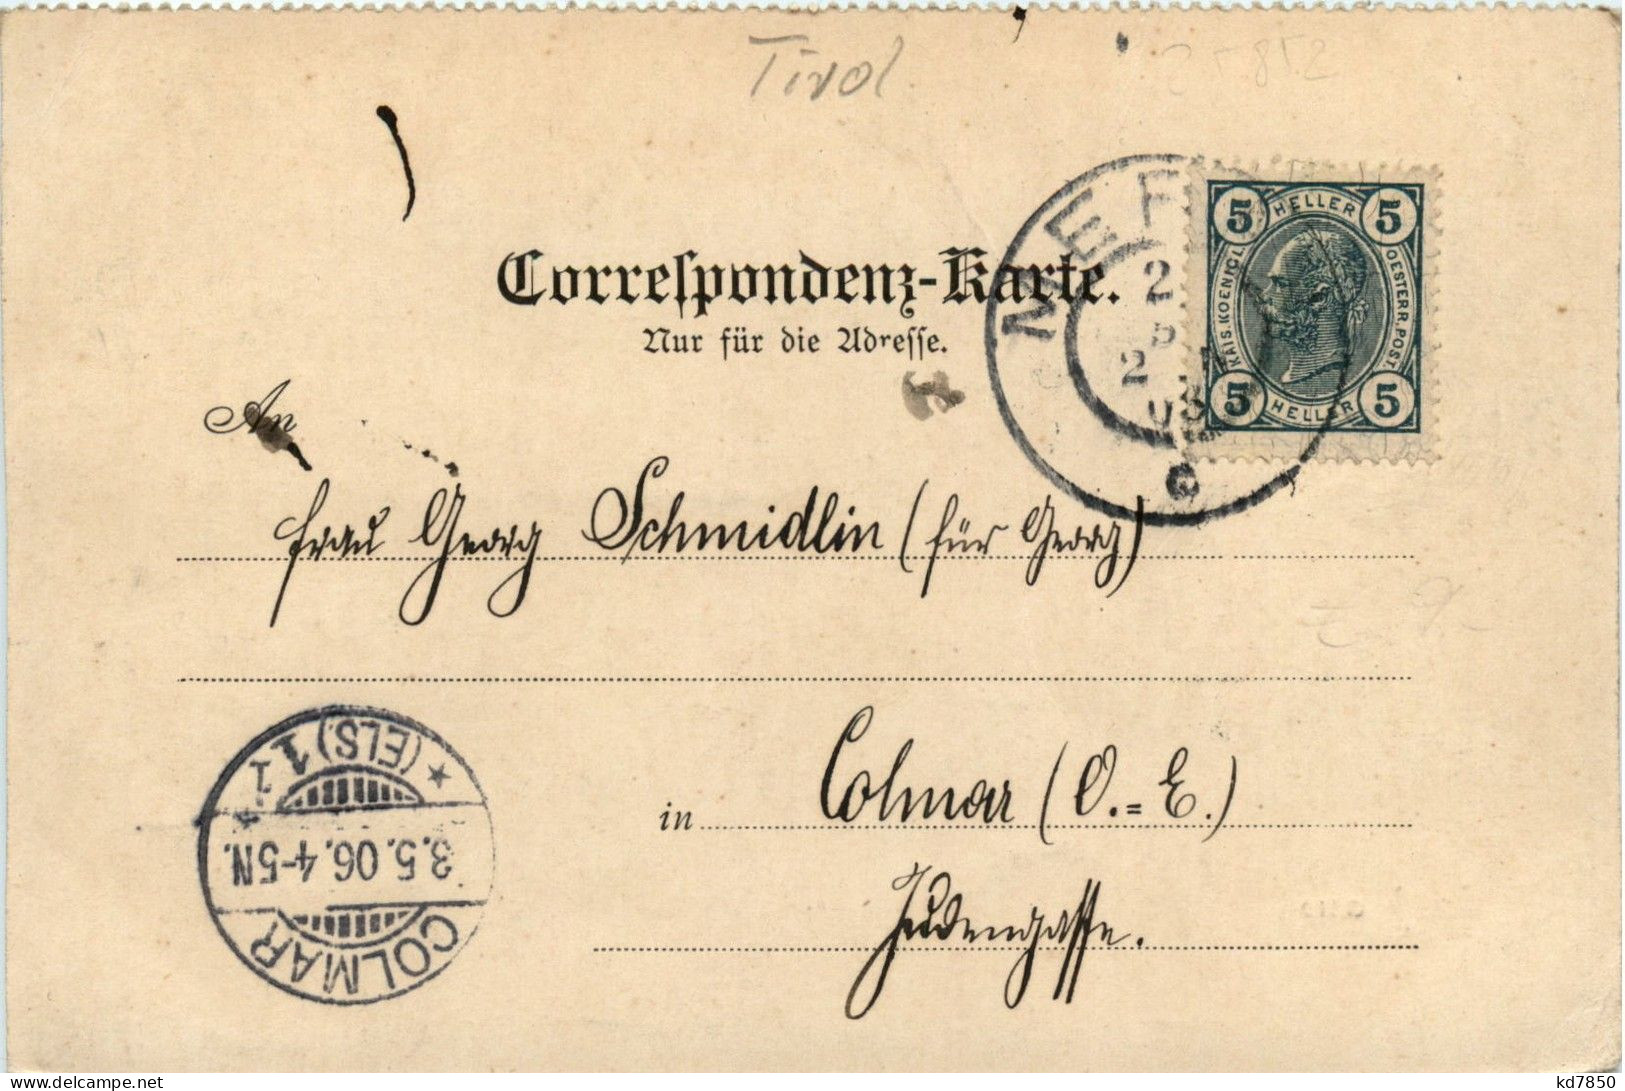 Tirol
Correspondenz-Karte.
Nur für die Adresse.
5 HELLER 5
KAIS. KOENIGL. OESTERR. POST
5 HELLER 5
An
Frau Georg Schmidlin (für Georg)
in Colmar (O.=E.)
Judengasse.
COLMAR
3.5.06.4-5N.
* (ELS) 1
delcampe.net
kd7850